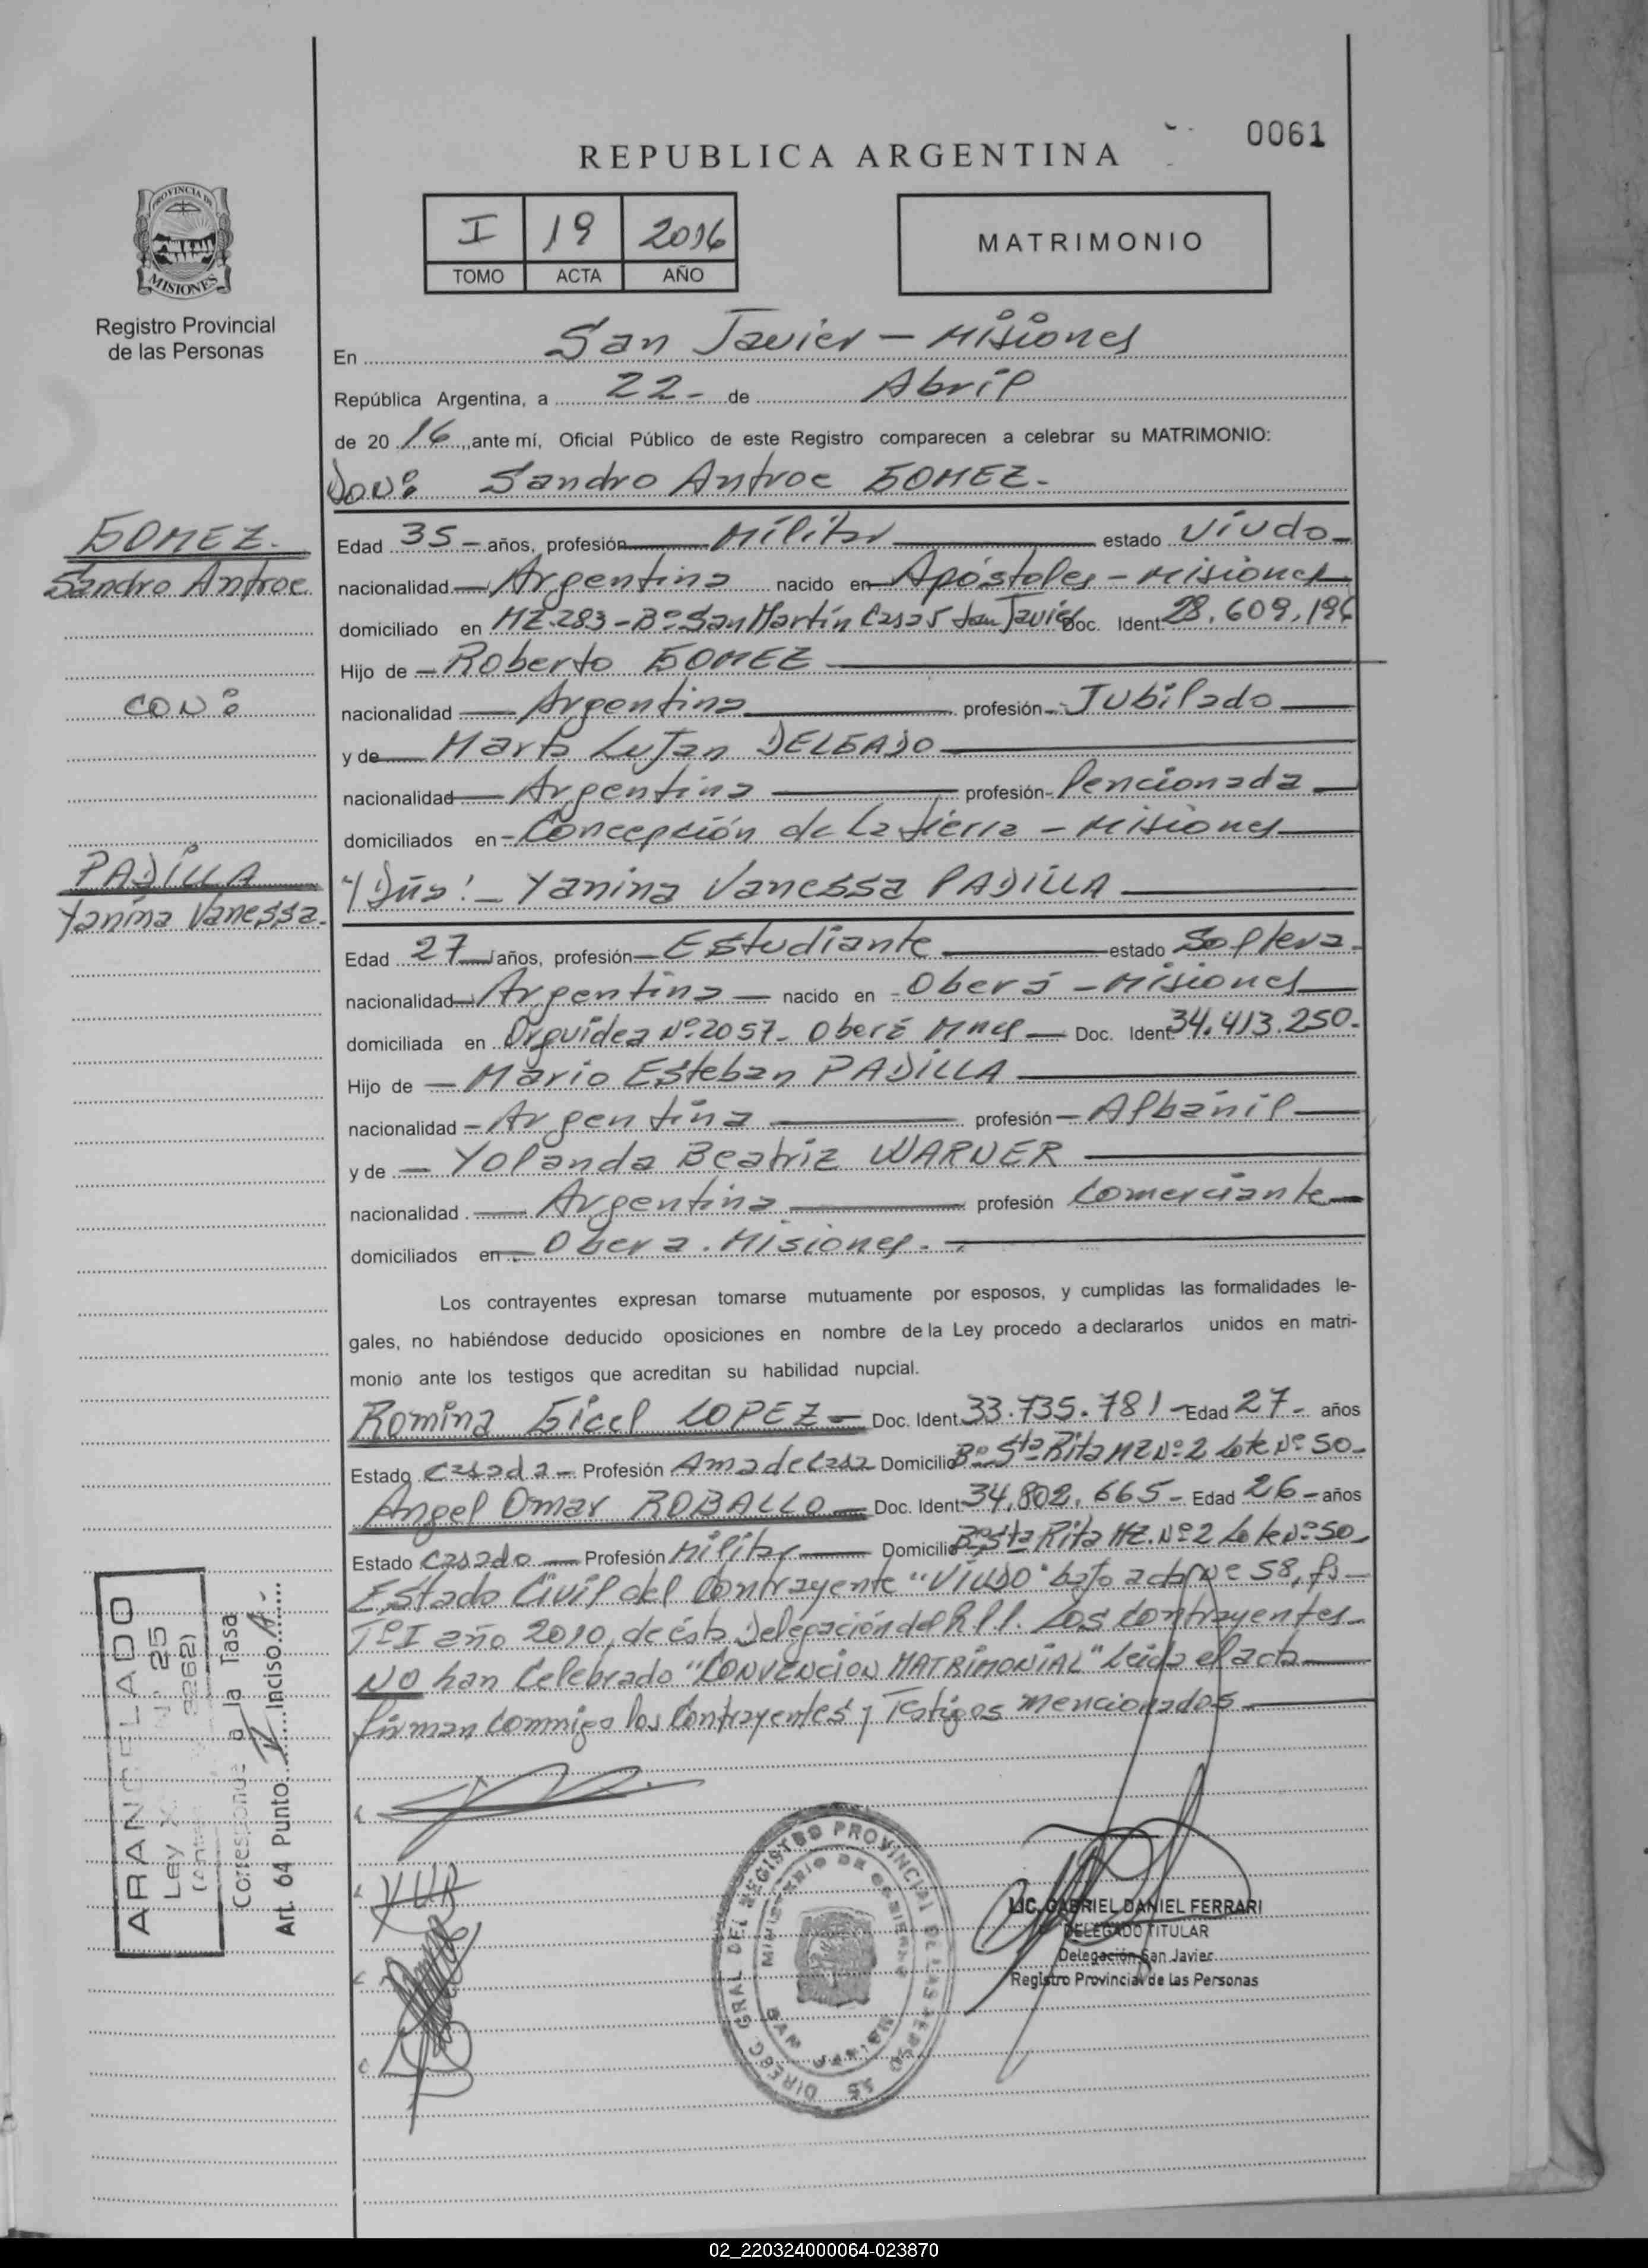 0061
REPUBLICA ARGENTINA
PROVINCIA DE
MISIONES
I 19 2016
TOMO ACTA AÑO
MATRIMONIO
Registro Provincial
de las Personas
En San Javier - Misiones
República Argentina, a 22 - de Abril
de 20 16, ante mí, Oficial Público de este Registro comparecen a celebrar su MATRIMONIO:
Don: Sandro Antroe GOMEZ.-
GOMEZ.
Sandro Antroe
CON:
PADILLA
Yanina Vanessa.
Edad 35 - años, profesión Militar estado Viudo -
nacionalidad Argentina nacido en Apóstoles - Misiones
domiciliado en MZ.283 - Bº San Martín Casa 5 San Javier Doc. Ident. 28.609.196
Hijo de - Roberto GOMEZ
nacionalidad Argentina profesión - Jubilado
y de Marta Lujan DELGADO
nacionalidad Argentina profesión - Pencionada
domiciliados en - Concepción de La Sierra - Misiones
Y Dña: - Yanina Vanessa PADILLA
Edad 27 años, profesión - Estudiante estado Soltera -
nacionalidad Argentina - nacido en - Oberá - Misiones
domiciliada en Orquidea Nº 2057 - Oberá Mnes - Doc. Ident. 34.413.250.-
Hijo de - Mario Esteban PADILLA
nacionalidad - Argentina profesión - Albañil
y de - Yolanda Beatriz WARNER
nacionalidad Argentina profesión Comerciante
domiciliados en - Obera. Misiones.-
Los contrayentes expresan tomarse mutuamente por esposos, y cumplidas las formalidades le-
gales, no habiéndose deducido oposiciones en nombre de la Ley procedo a declararlos unidos en matri-
monio ante los testigos que acreditan su habilidad nupcial.
Romina Gicel LOPEZ - Doc. Ident. 33.735.781 - Edad 27 - años
Estado Casada - Profesión Ama de Casa Domicilio Bº Sta Rita MZ Nº 2 Lote Nº 50 -
Angel Omar ROBALLO - Doc. Ident. 34.802.665 - Edad 26 - años
Estado Casado - Profesión Militar Domicilio Bº Sta Rita MZ. Nº 2 Lote Nº 50 -
Estado Civil del Contrayente "Viudo" bajo acta Nº 58, fs -
Tº I año 2010, de ésta Delegación del R.P.P. Los Contrayentes
NO han Celebrado "CONVENCION MATRIMONIAL" Leida el acta
firman conmigo los Contrayentes y Testigos mencionados
ARANCELADO
Ley Nº 25
3262)
Corresponde a la Tasa
Art. 64 Punto IV Inciso A -
DIRECC. GRAL DEL REGISTRO PROVINCIAL DE LAS PERSONAS
MINISTERIO DE GOBIERNO
SAN JAVIER
LIC. GABRIEL DANIEL FERRARI
DELEGADO TITULAR
Delegación San Javier
Registro Provincial de las Personas
02_220324000064-023870